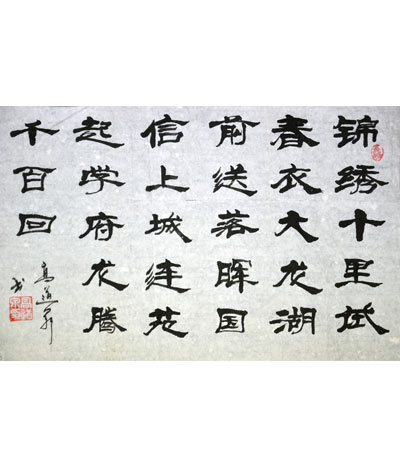 锦绣十里试
春衣大龙湖
前送落晖国
信上城连苑
起学府龙腾
千百回
高道
书